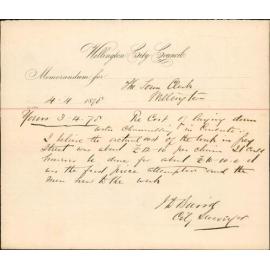 Wellington City Council
Memorandum for
The Town Clerk
Wellington
4.4.1895
Yours 3-4-95 Re Cost of laying down
water channelling in Cement
I believe the actual cost of the work in
Street was about per chain. It could
however be done for about it
was the first piece attempted and the
men new to the work
City Surveyor